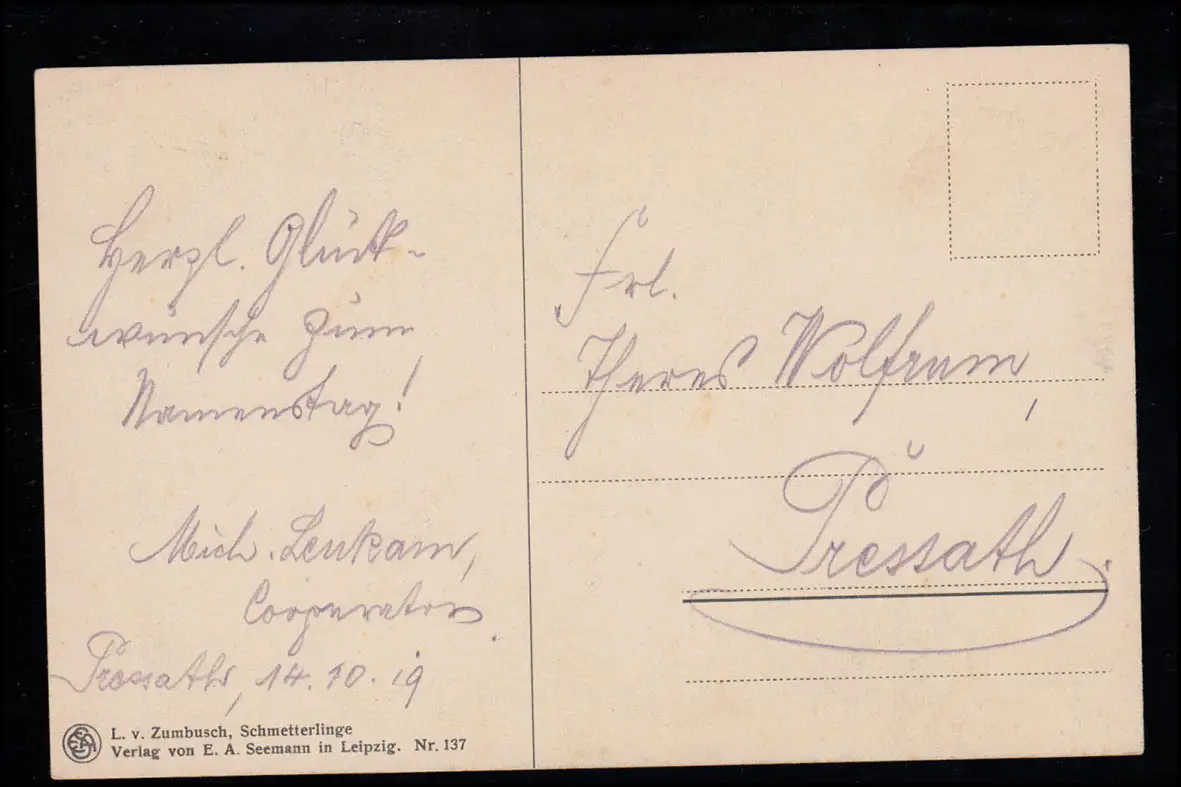 Herzl. Glück-
wünsche zum
Namenstag!
Mich. Lenkam,
Cooperator.
Pressath, 14.10.19
L. v. Zumbusch, Schmetterlinge
Verlag von E. A. Seemann in Leipzig. Nr. 137
Frl.
Theres Wolfrum,
Pressath.